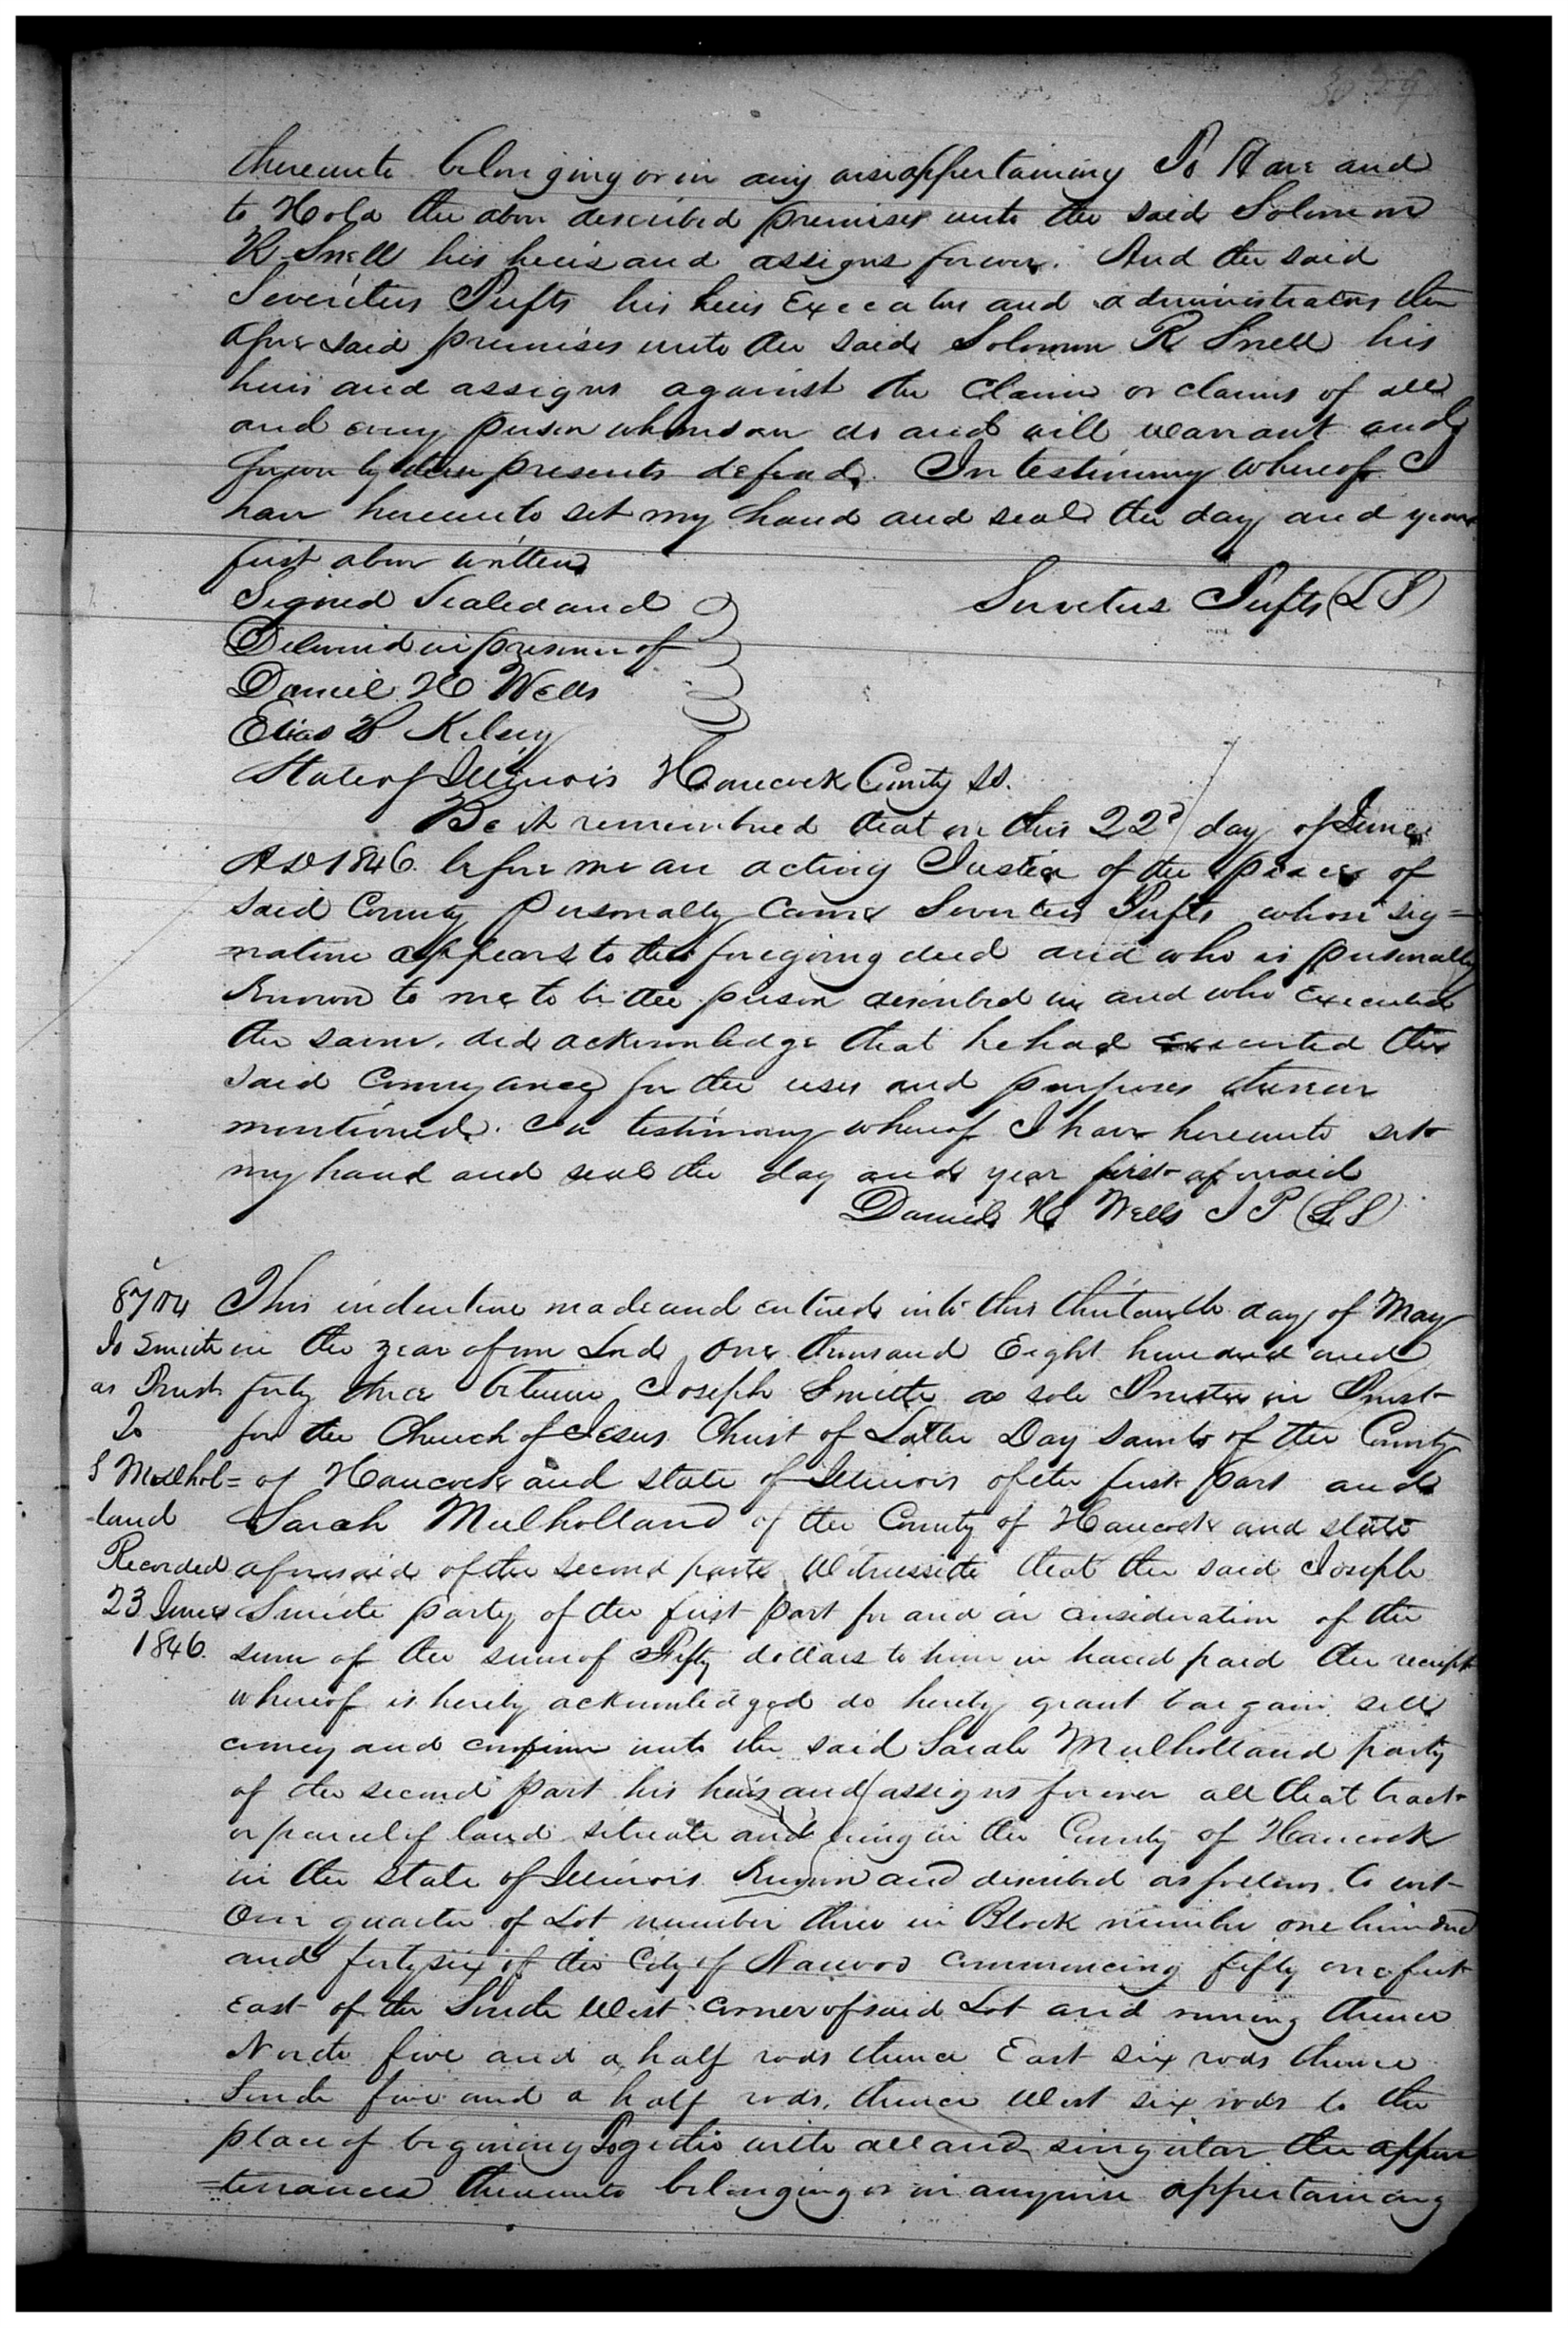 thereunto belonging or in any wise appertaining To Have and
to Hold the above described premises unto the said Solomon
R Snell his heirs and assigns forever. And the said
Severitus Tufts his heirs Executors and administrators the
afore said premises unto the said Solomon R Snell his
heirs and assigns against the Claim or claims of all
and every person whomsoever do and will warrant and
forever by these presents defend. In testimony whereof I
have hereunto set my hand and seal the day and year
first above written
Signed Sealed and
Sevretus Tufts (L S)
Delivered in presence of
Daniel H Wells
Elias Kelsey
State of Illinois Hancock County SS.
Be it remembered that on this 22d day of June
AD 1846. before me an acting Justice of the peace of
said County personally came Severtus Tufts whose sig=
=nature appears to the foregoing deed and who is personally
Known to me to be the person described in and who Executed
the same. did acknowledge that he had executed the
said Conveyance for the uses and purposes therein
mentioned. In testimony whereof I have hereunto set
my hand and seal the day and year first aforesaid
Daniel H Wells J P (L S)
8704 This indenture made and entered into this thirteenth day of May
Jo Smith in the year of our Lord one thousand Eight hundred and
as Trust forty three between Joseph Smith as sole Trustee in Trust
To for the Church of Jesus Christ of Latter Day Saints of the County
S Mulhol= of Hancock and state of Illinois of the first part and
-land Sarah Mulholland of the County of Hancock and state
Recorded aforesaid of the second part Witnesseth that the said Joseph
23 June Smith party of the first part for and in consideration of the
1846. sum of the sum of Fifty dollars to him in hand paid the receipt
whereof is hereby acknowledged do hereby grant bargain sell
convey and confirm unto the said Sarah Mulholland party
of the second part his heirs and assigns forever all that tract
or parcel of land situate and being in the County of Hancock
in the state of Illinois Known and described as follows. to wit
One quarter of Lot number three in Block number one hundred
and forty six of the City of Nauvoo Commencing fifty one feet
East of the South West corner of said Lot and running thence
North five and a half rods thence East six rods thence
South five and a half rods, thence West six rods to the
place of begining Together with all and singular the appur
=tenances thereunto belonging or in anywise appertaining